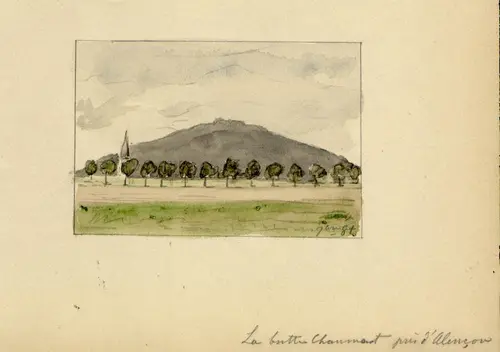 La butte Chaumont près d'Alençon